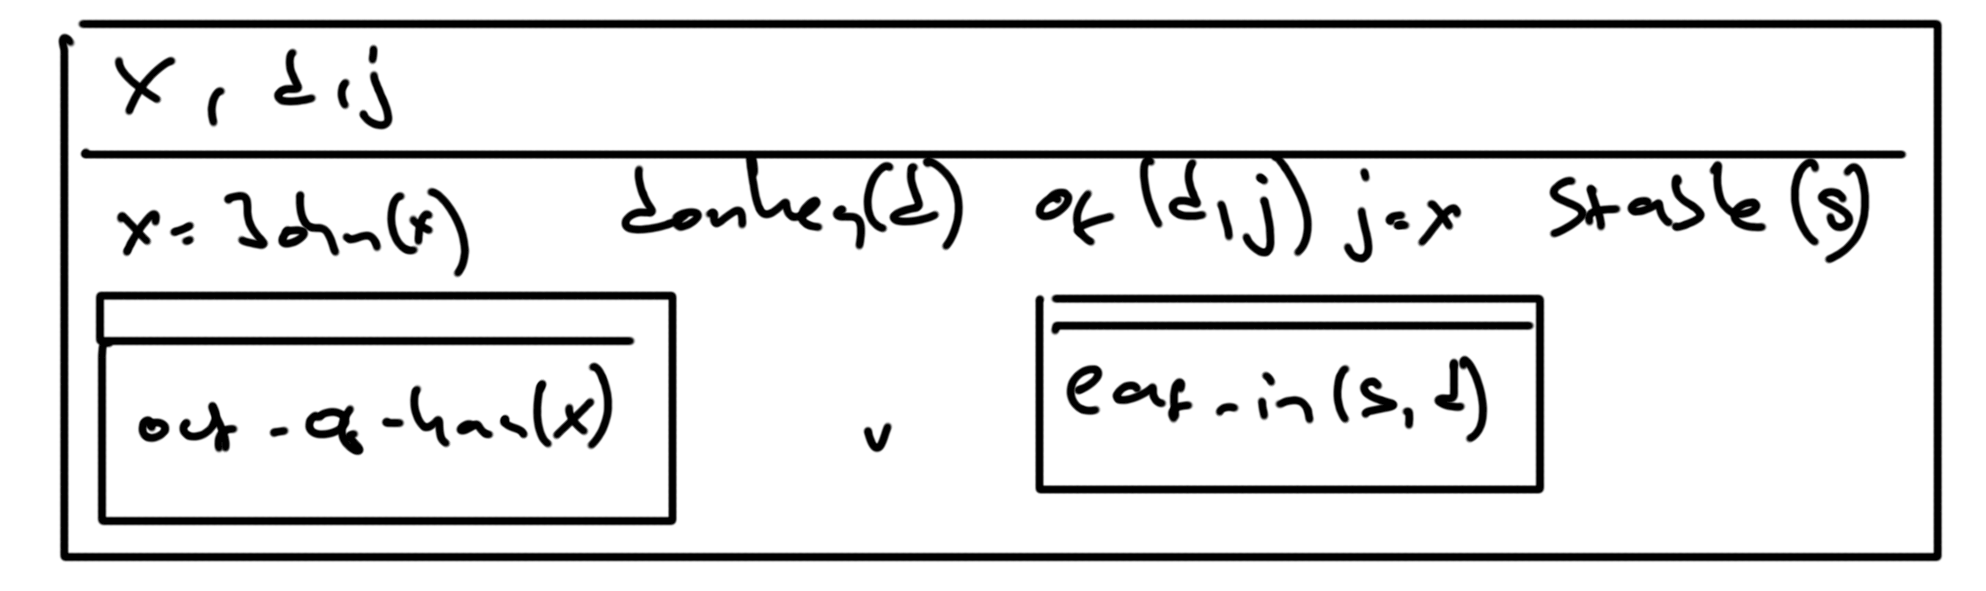 x, d, j
x = John(x) donkey(d) of(d, j) j = x stable(s)
out-of-hay(x) v eat-in(s, d)